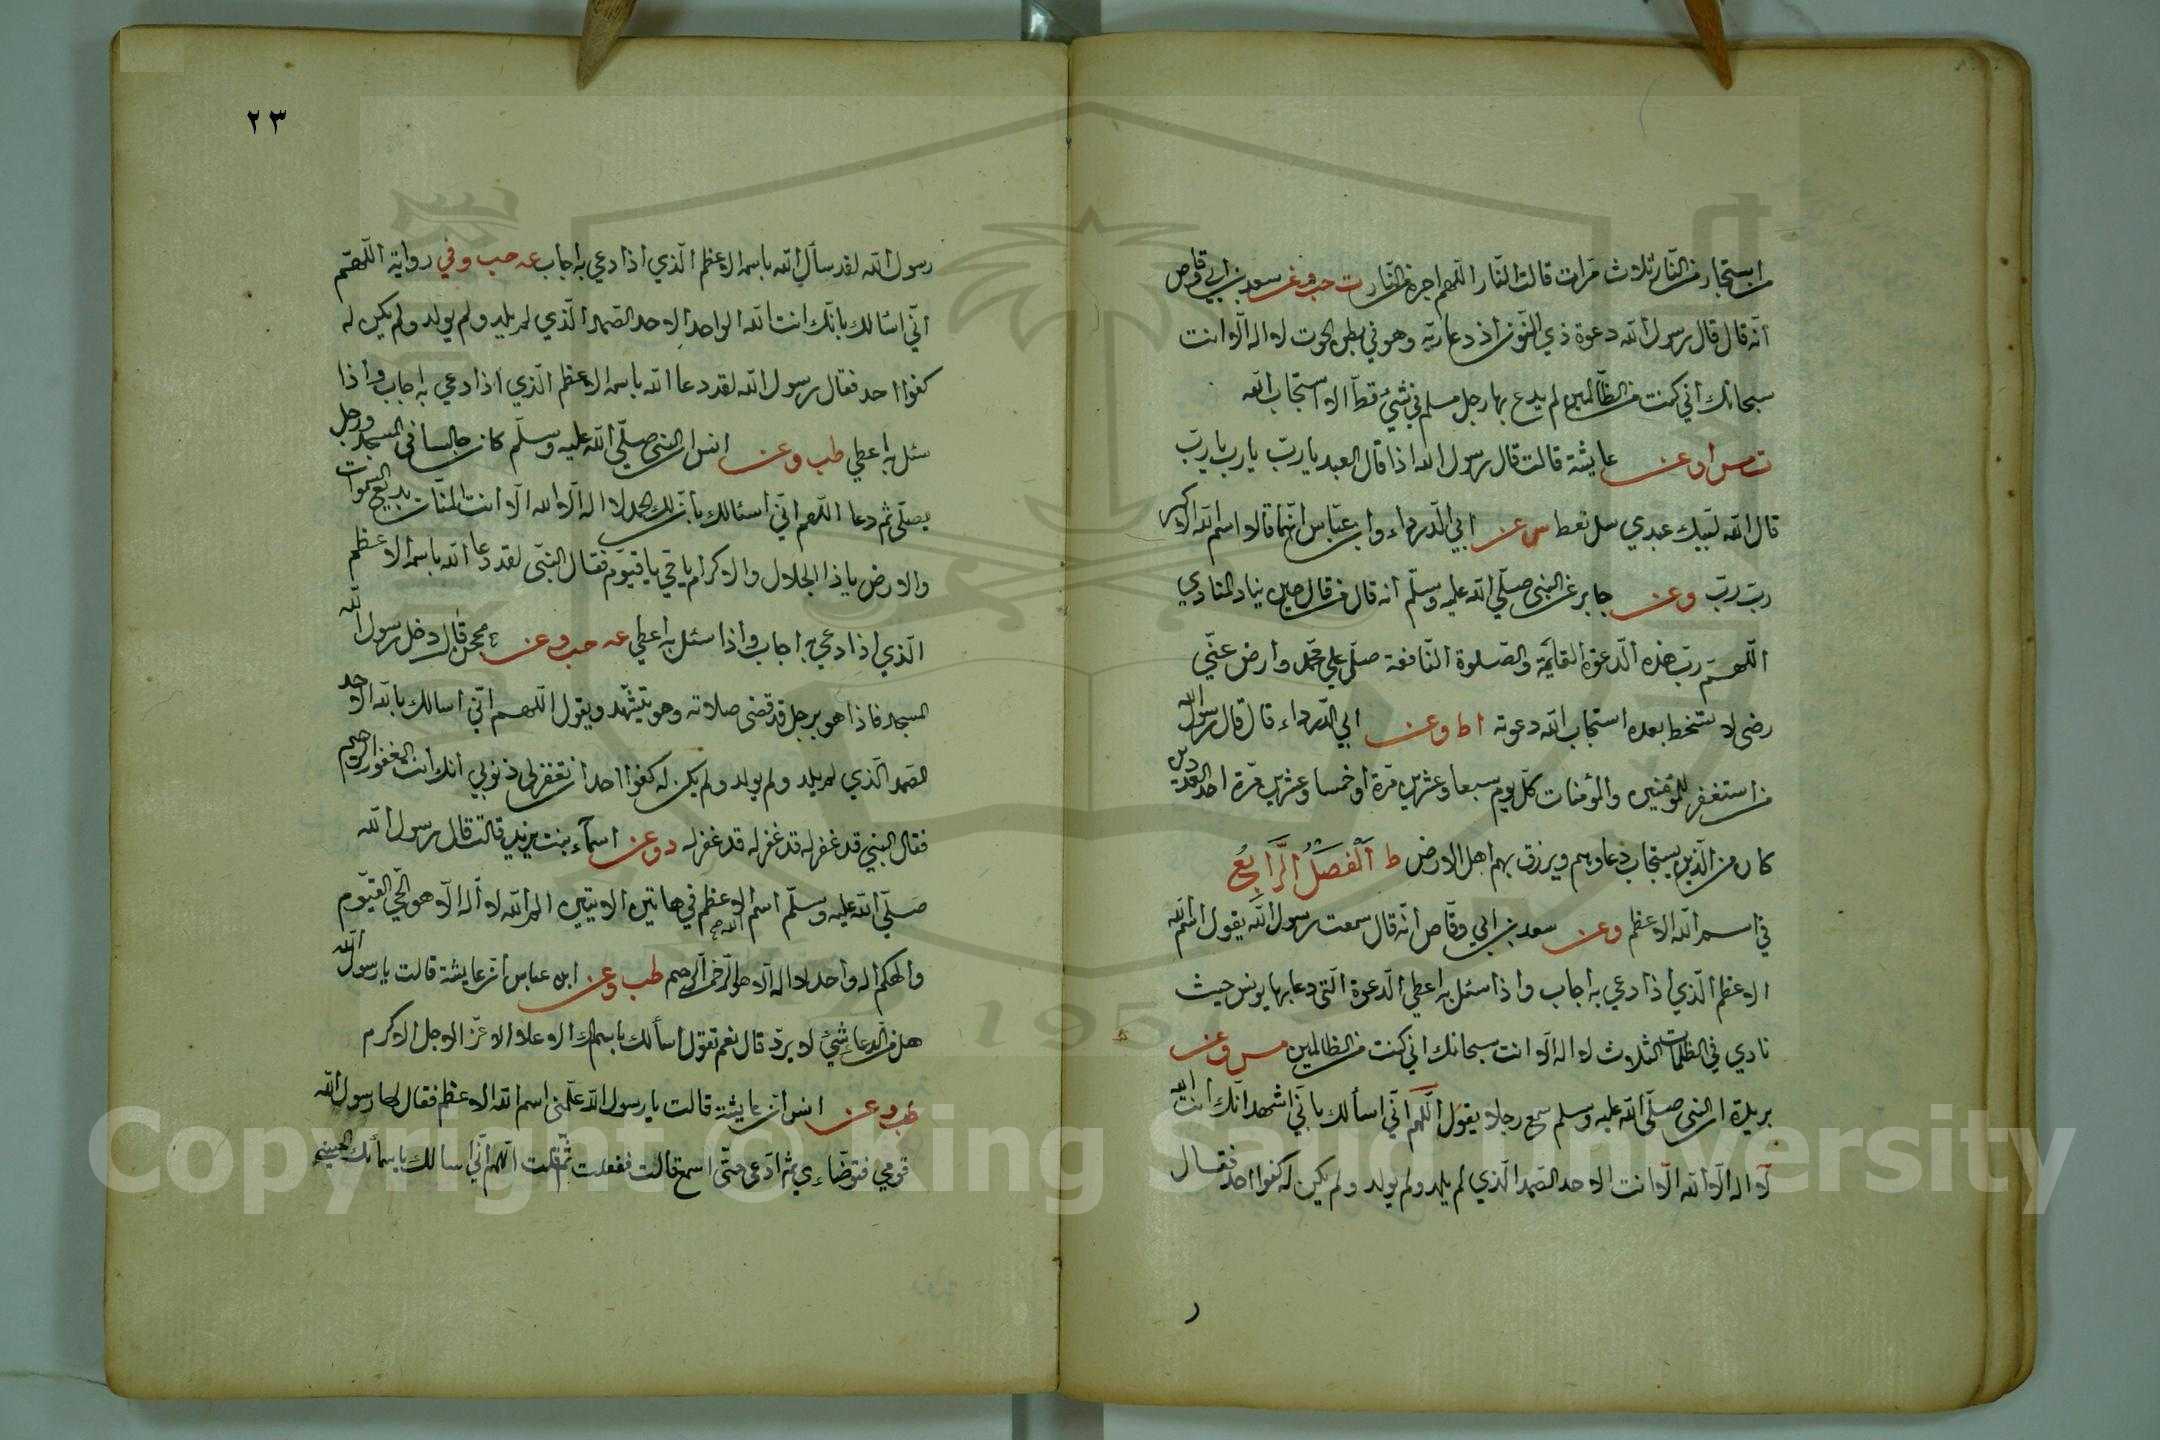 استجار من النار ثلاث مرات قالت النار اللهم اجره من النار ت حب وعن سعد بن ابي وقاص
انه قال قال رسول الله دعوة ذي النون اذ دعا ربه وهو في بطن الحوت لا اله الا انت
سبحانك اني كنت من الظالمين لم يدع بها رجل مسلم في شيء قط الا استجاب الله
ت س ا وعن عايشة قالت قال رسول الله اذا قال العبد يا رب يا رب يا رب
قال الله لبيك عبدي سل تعط س عن ابي الدرداء وابن عباس انهما قالا اسم الله الاكبر
رب رب وعن جابر عن النبي صلى الله عليه وسلم انه قال من قال حين يناد المنادي
اللهم رب هذه الدعوة القائمة والصلوة النافعة صلي علي محمد وارض عني
رضى لا سخط بعده استجاب الله دعوته ا ط وعن ابي الدرداء قال قال رسول الله
من استغفر للمؤمنين والمؤمنات كل يوم سبعا وعشرين مرة او خمسا وعشرين مرة احد العددين
كان من الذين يستجاب دعاوهم ويرزق بهم اهل الارض ط الفصل الرابع
في اسم الله الاعظم وعن سعد بن ابي وقاص انه قال سمعت رسول الله يقول اسم الله
الاعظم الذي اذا دعي به اجاب واذا سئل به اعطي الدعوة التي دعا بها يونس حيث
نادي في الظلمات الثلاث لا اله الا انت سبحانك اني كنت من الظالمين مس وعن
بريدة ان النبي صلى الله عليه وسلم سمع رجلا يقول اللهم اني اسألك باني اشهد انك انت الله
لا اله الا الله الا انت الاحد الصمد الذي لم يلد ولم يولد ولم يكن له كفوا احد فقال
٢٣
رسول الله لقد سأل الله باسمه الاعظم الذي اذا دعي به اجاب عه حب وفي رواية اللهم
اني اسالك بانك انت الله الواحد الاحد الصمد الذي لم يلد ولم يولد ولم يكن له
كفوا احد فقال رسول الله لقد دعا الله باسمه الاعظم الذي اذا دعي به اجاب واذا
سئل به اعطي طب وعن انس ان النبي صلى الله عليه وسلم كان جالسا في المسجد ورجل
يصلي ثم دعا اللهم اني اسئالك بان لك الحمد لا اله الا الله الا انت المنان بديع السموات
والارض يا ذا الجلال والاكرام يا حي يا قيوم فقال النبي لقد دعا الله باسمه الاعظم
الذي اذا دعي به اجاب واذا سئل به اعطي عه حب وعن محجن قال دخل رسول الله
المسجد فاذا هو برجل قد قضى صلاته وهو يتشهد ويقول اللهم اني اسالك بالله الاحد
الصمد الذي لم يلد ولم يولد ولم يكن له كفوا احد ان تغفر لي ذنوبي انك انت الغفور الرحيم
فقال النبي قد غفر له قد غفر له قد غفر له د وعن اسماء بنت يزيد قالت قال رسول الله
صلى الله عليه وسلم اسم الله الاعظم في هاتين الايتين الم الله لا اله الا هو الحي القيوم
والهكم اله واحد لا اله الا هو الرحمن الرحيم طب وعن ابن عباس ان عايشة قالت يا رسول الله
هل من الدعاء شيء لا يرد قال نعم تقول اسألك باسمك الاعلا الاعز الاجل الاكرم
طب وعن انس ان عايشة قالت يا رسول الله علمني اسم الله الاعظم فقال لها رسول الله
قومي فتوضاءي ثم ادعي حتى اسمع قالت ففعلت ثم قلت اللهم اني اسالك باسمائك الحسنى
1957
Copyright © King Saud University